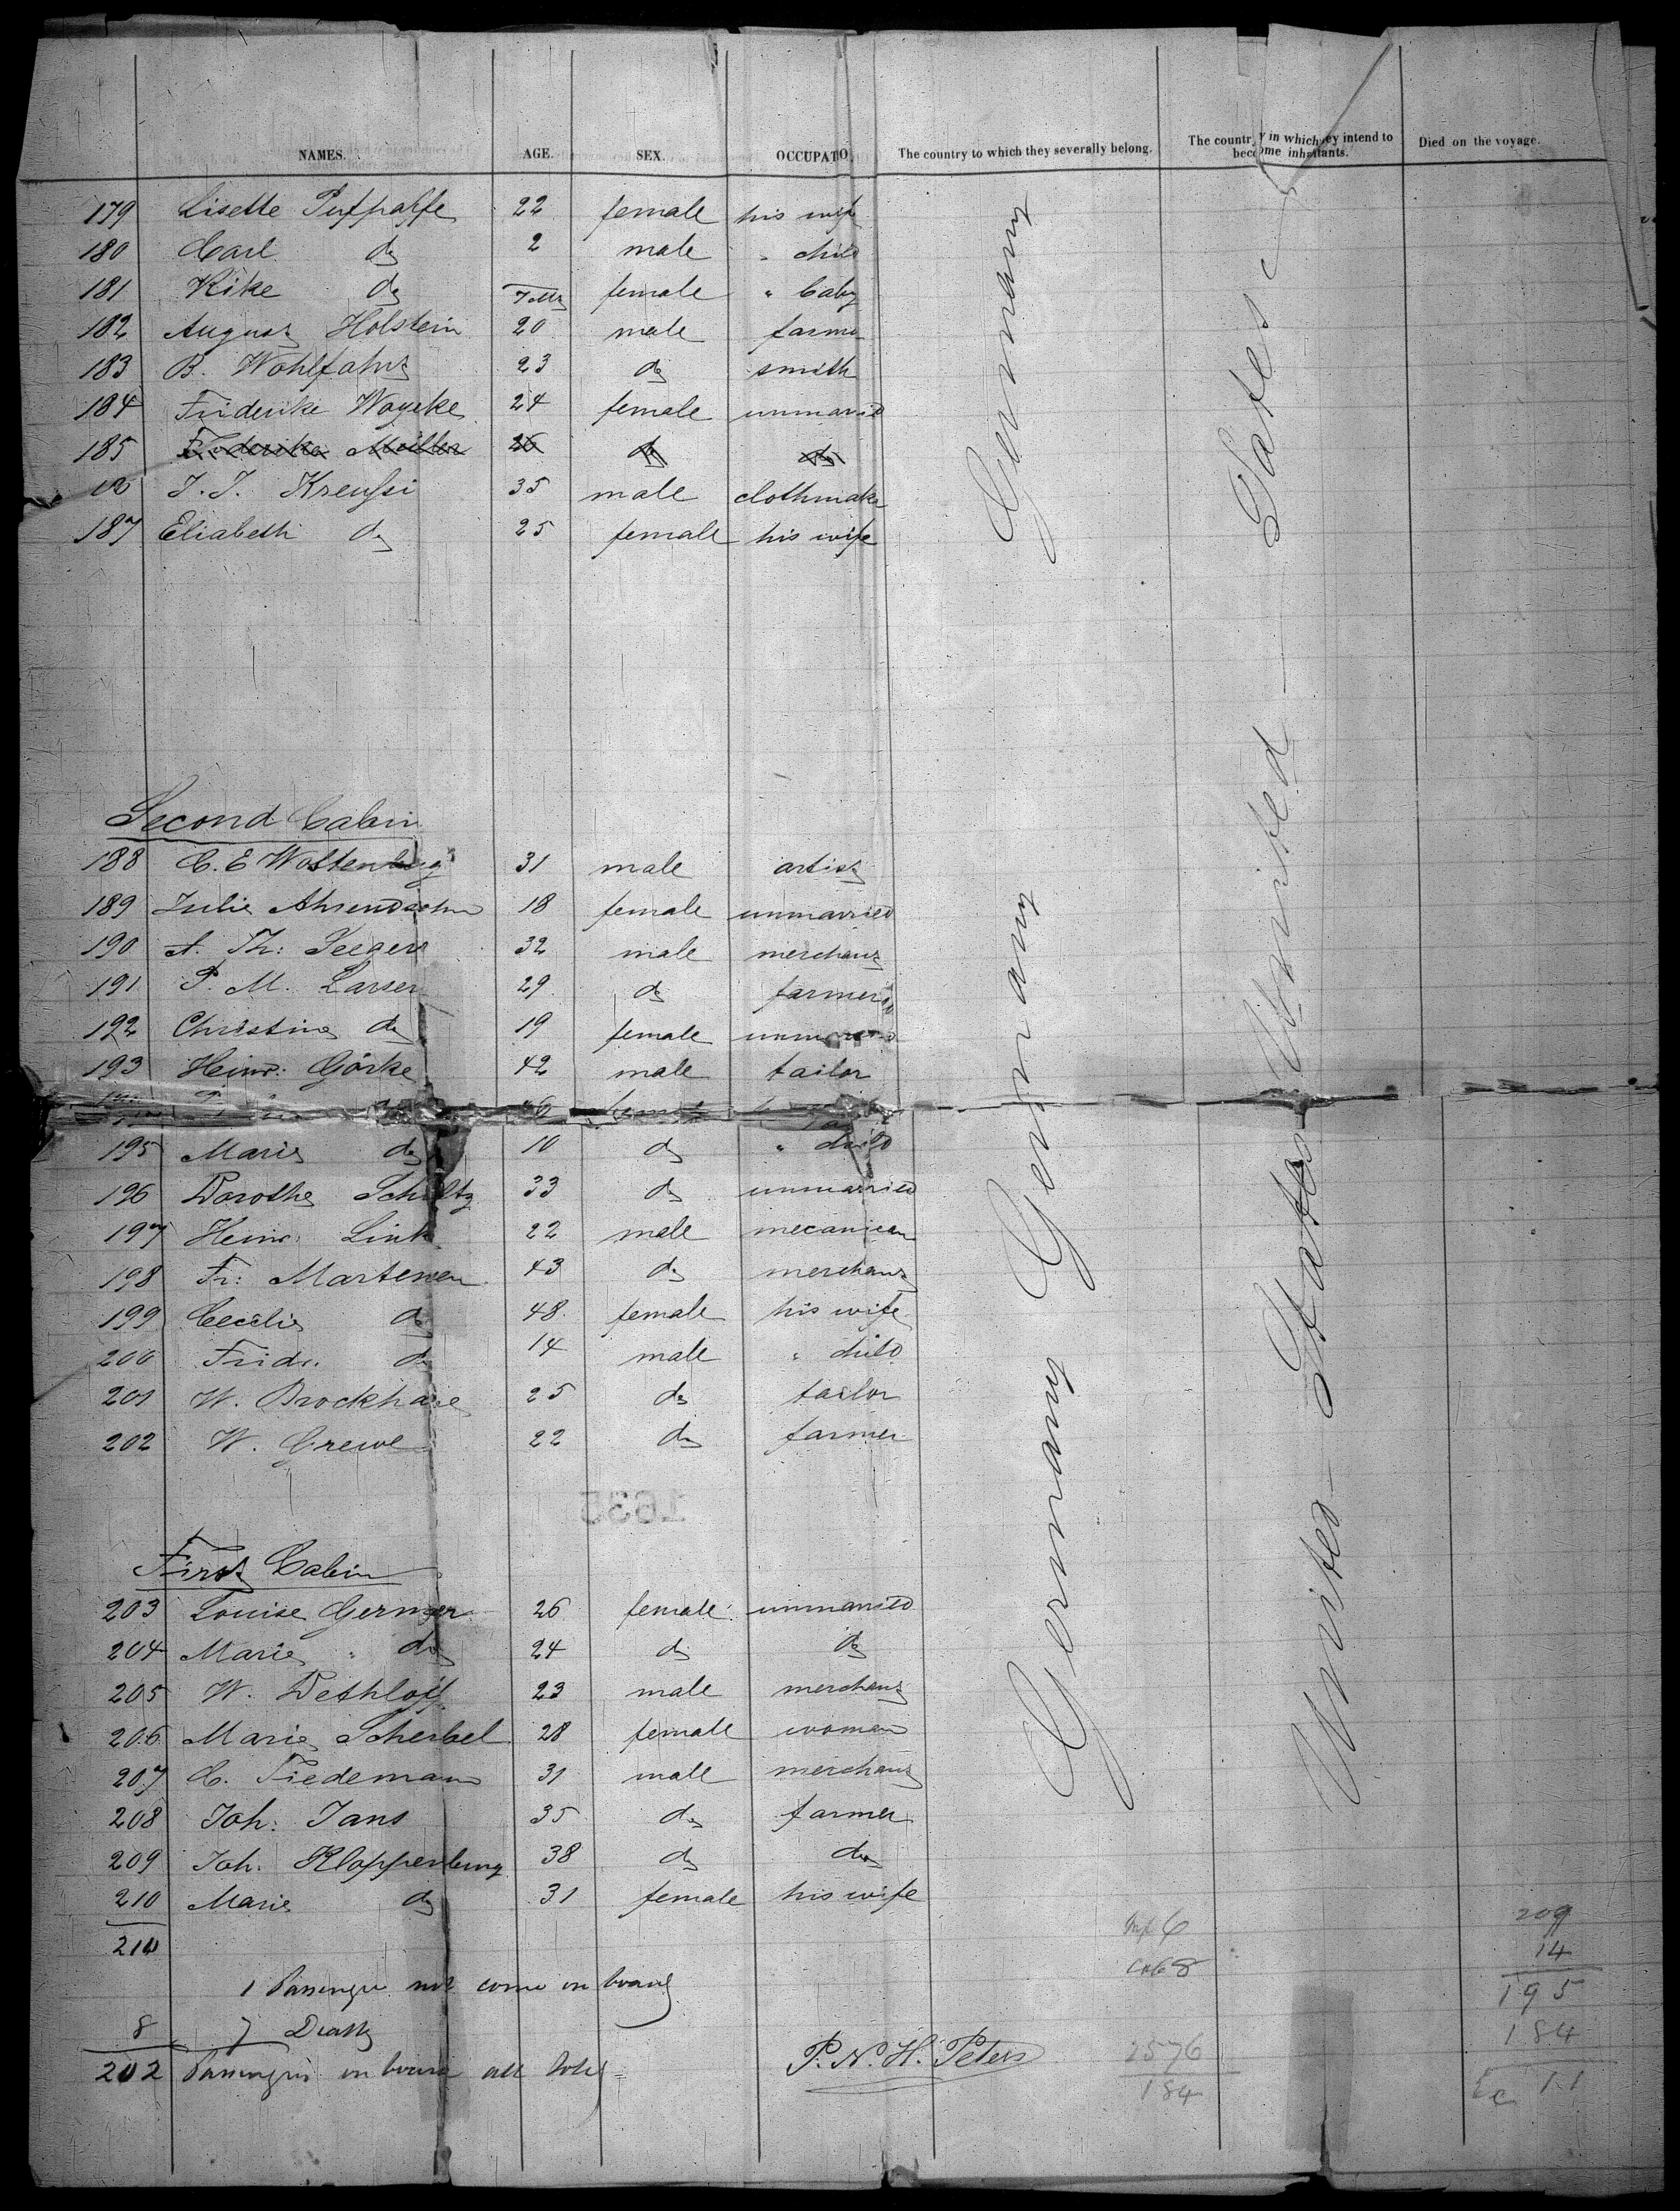 NAMES. AGE. SEX. OCCUPATIO The country to which they severally belong. The country in which they intend to become inhabitants. Died on the voyage.
179 Lisette Pufpaffe 22 female his wife
180 Carl do 2 male " child
181 Rike do 7 Mt female " baby
182 August Holstein 20 male farmer
183 B. Wohlfahrt 23 do smith
184 Friderike Woyeke 24 female unmarried
185 Friderike Müller 26 do do
186 J. J. Kreussi 35 male clothmaker
187 Eliabeth do 25 female his wife
Second Cabin
188 C. E Woltenberg 31 male artist
189 Julie Ahrendsohn 18 female unmarried
190 A. Th: Seegers 32 male merchant
191 P. M. Larsen 29 do farmer
192 Christine do 19 female unmarried
193 Heinr: Görke 42 male tailor
46 female
195 Marie do 10 do " child
196 Dorothe Schultz 33 do unmarried
197 Heinr. Link 22 male mecanican
198 Fr: Martensen 43 do merchant
199 Cecilie do 48 female his wife
200 Fridr. do 14 male " child
201 W. Brockhase 25 do tailor
202 W. Grewe 22 do farmer
1635
First Cabin
203 Louise Germer 26 female unmarried
204 Marie " do 24 do do
205 W. Dethloff 23 male merchant
206 Marie Scherbel 28 female woman
207 C. Tiedemann 31 male merchant
208 Joh: Jans 35 do farmer
209 Joh. Kloppenburg 38 do do
210 Marie do 31 female his wife
210
1 Passenger not come on board
8 7 Death
202 Passengers on board all told =
P. N. H. Peters
Germany Germany Germany
United States United States
Inf 6
8
2576
184
209
14
195
184
11